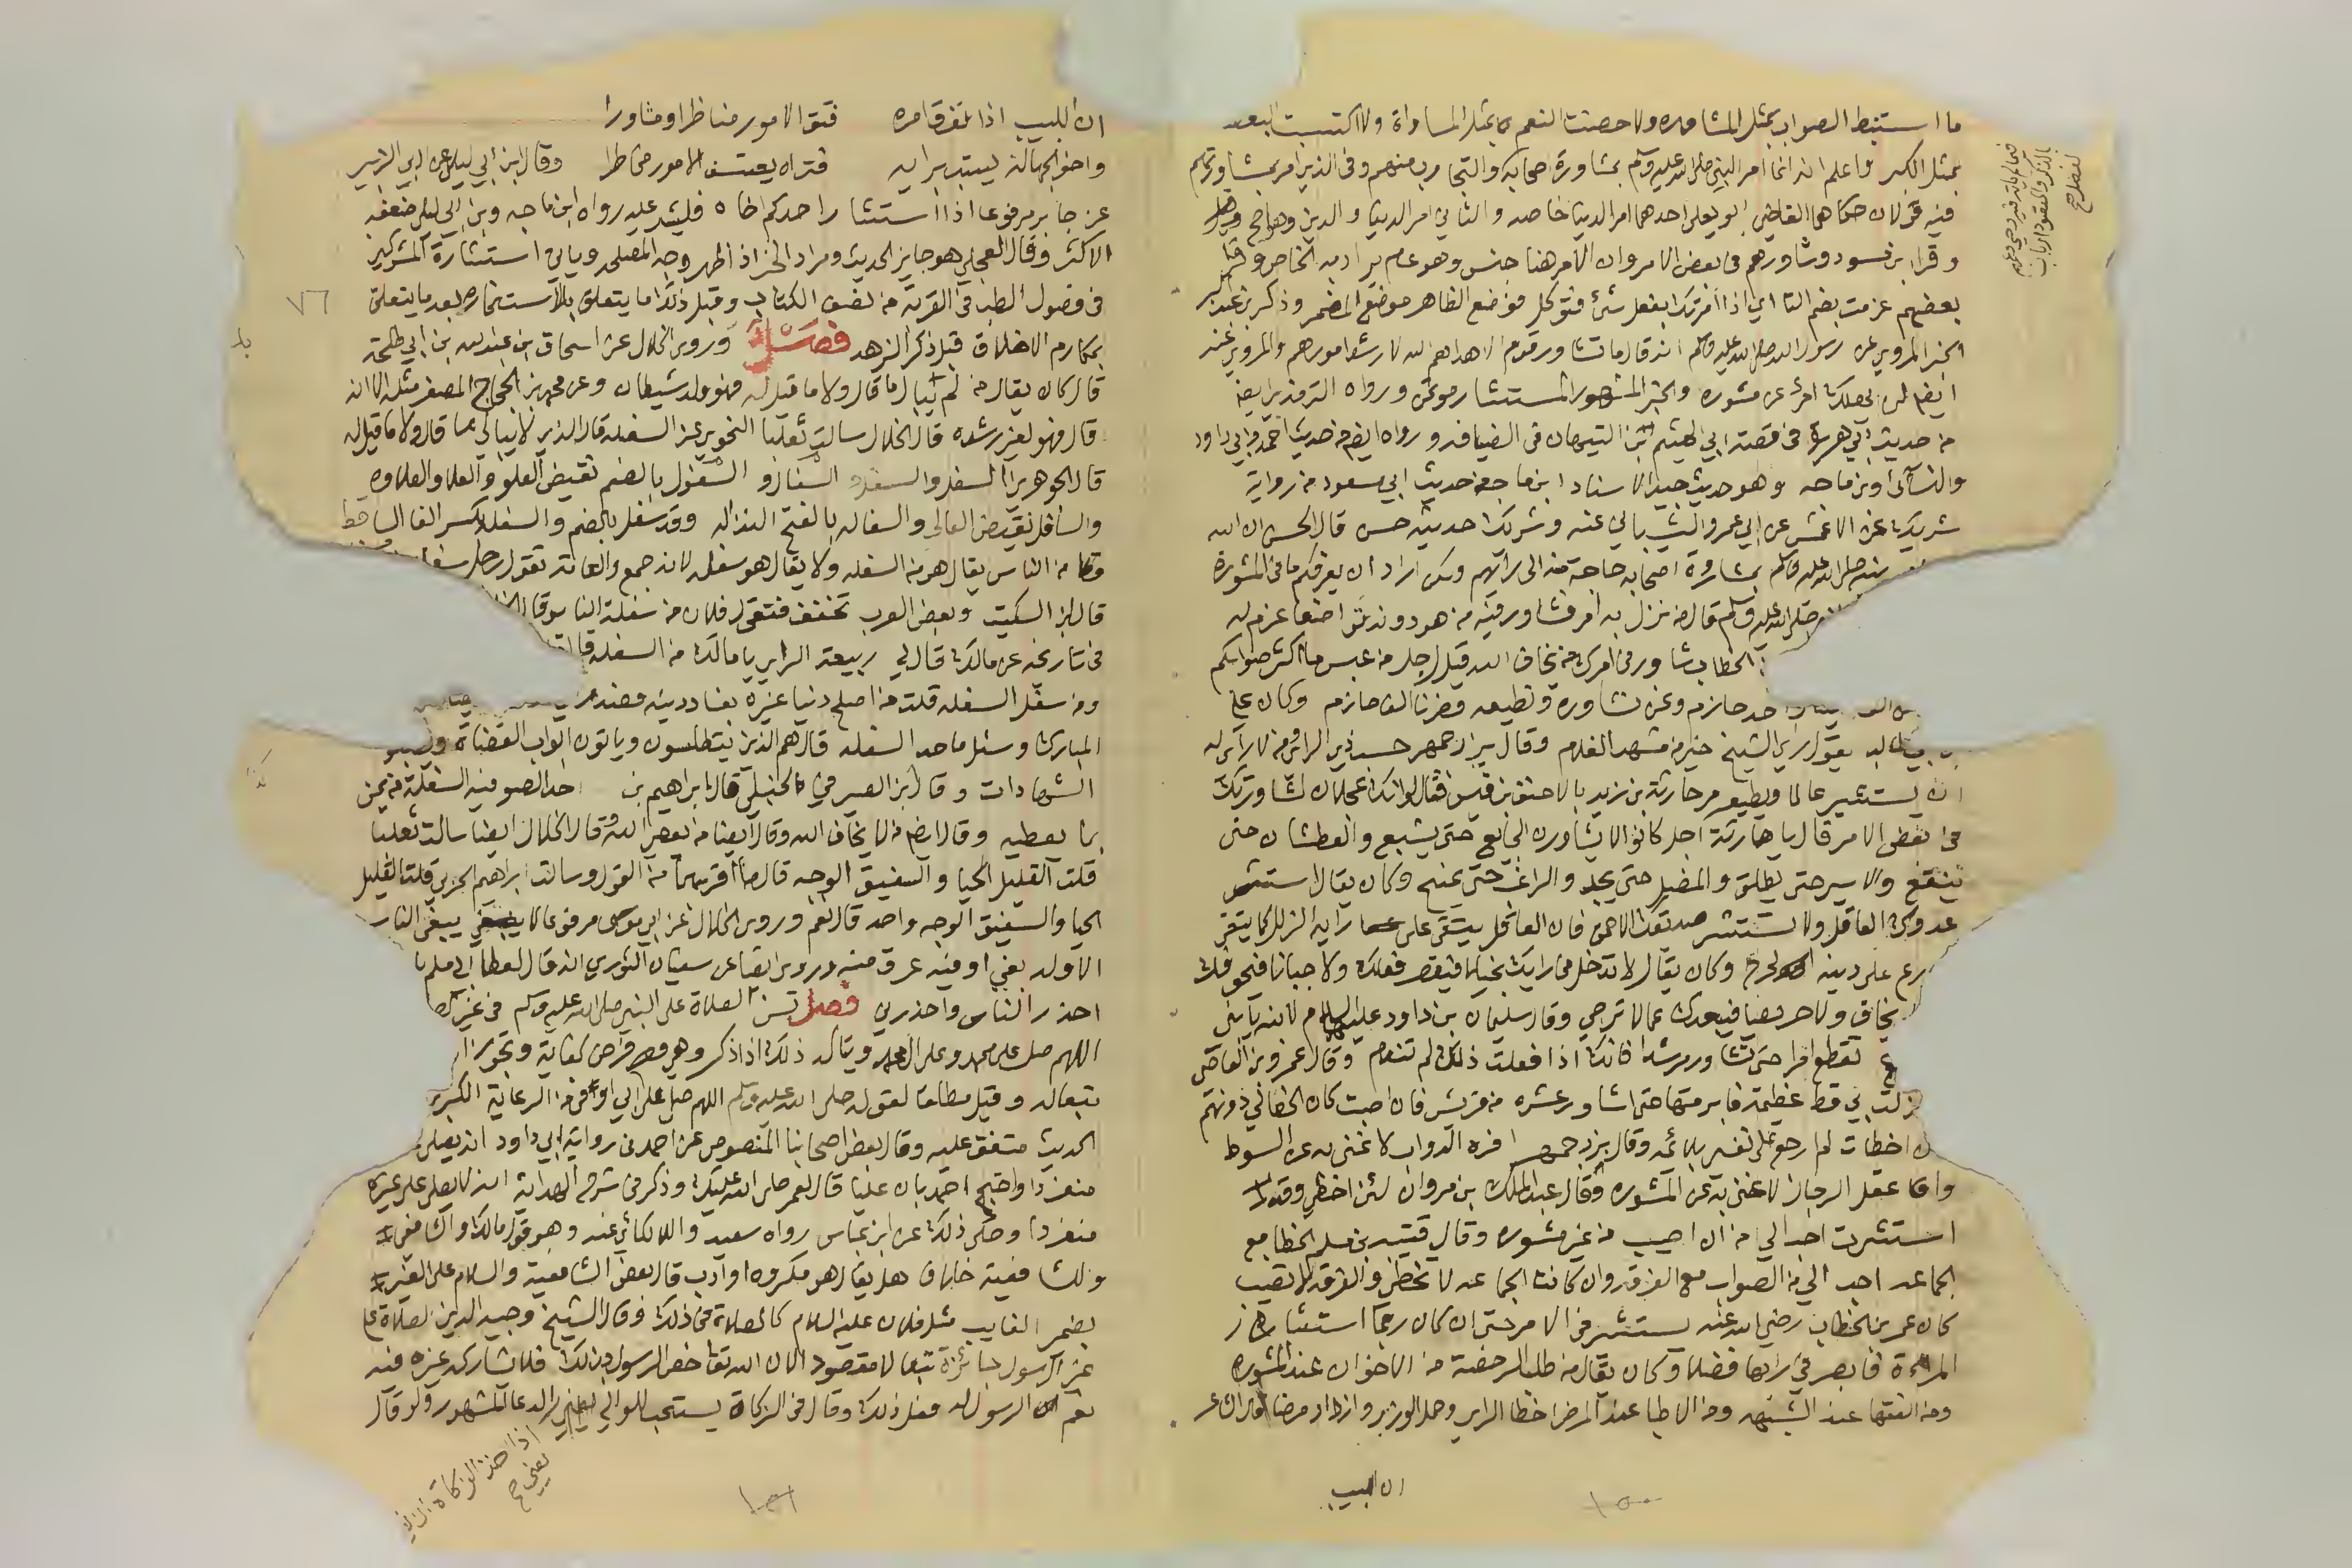 ما استنبط الصواب بمثل المشاوره ولا حصنت النعم بمثل المساواة ولا اكتسبت البغضه
بمثل الكبر واعلم انه انما امر النبي صلى الله عليه وسلم بمشاورة اصحابه
فيه قولان حكاهما القاضي ابو يعلى احدهما امر الدنيا خاصه والثاني امر الدنيا والدين وهو اصح
وقرا بن مسعود وشاورهم في بعض الامر وان الامر هنا جنس وهو عام يراد به الخاص
بعضهم عزمت بضم التا اي اذا امرتك بفعل شئ فتوكل فوضع الظاهر موضع المضمر وذكر بن عبد البر
الخبر المروي عن رسول الله صلى الله عليه وسلم انه قال ما تشاور قوم الا هداهم الله لارشد امورهم والمروي عنه
ايضا لن يهلك امرؤ عن مشوره والخبر المشهور المستشار مؤتمن ورواه الترمذي ايضا
من حديث ابي هريرة في قصة ابي الهيثم بن التيهان في الضيافه ورواه ايضا من حديث احمد وابي داود
والنسائي وبن ماجه وهو حديث جيد الاسناد ابن ماجه من حديث ابي مسعود من رواية
شريك عن الاعمش عن ابي عمرو الشيباني عنه وشريك حديثه حسن قال الحسن ان الله
صلى الله عليه وسلم بمشاورة اصحابه حاجة منه الى رايهم ولكن اراد ان يعرفكم ما في المشورة
صلى الله عليه وسلم قال من نزل به امر فشاور فيه من هو دونه تواضعا عزم له
الخطاب شاور في امرك من يخاف الله قيل لرجل من عبس ما اكثر صوابكم
حازم ونحن نشاوره ونطيعه فصرنا الف حازم وكان علي
يقول راي الشيخ خير من مشهد الغلام وقال بزرجمهر حسب ذي الراي ومن لا راي له
ان يستشير عالما ويطيعه مر حارثة بن زيد بالاحنف بن قيس فقال لولا انك عجلان لشاورتك
في بعض الامر قال يا حارثة اجل كانوا لا يشاورون الجايع حتى يشبع والعطشان حتى
ينقع والاسير حتى يطلق والمضل حتى يجد والراغب حتى يمنح وكان يقال استشر
عدوك العاقل ولا تستشر صديقك الاحمق فان العاقل يتقي على رايه الزلل كما يتقي
على دينه الحرج وكان يقال لا تدخل في رايك بخيلا فيقصر فعلك ولا جبانا فيخوفك
يخاف ولا حريصا فيعدك ما لا ترجى وقال سليمان بن داود عليهما السلام لابنه يا بني
تقطع امرا حتى تشاور مرشدا فانك اذا فعلت ذلك لم تندم وقال عمرو بن العاص
نزلت بي قط عظيمة فابرمتها حتى اشاور عشره من قريش فان اصبت كان الحظ لي دونهم
اخطات لم ارجع على نفسي بلائمه وقال بزرجمهر افره الدواب لا غنى به عن السوط
واعقل الرجال لا غنى به عن المشوره وقال عبد الملك بن مروان لئن اخطي وقد
استشرت احب الي من ان اصيب من غير مشوره وقال قتيبه بن مسلم الخطا مع
الجماعه احب الي من الصواب مع الفرقه وان كانت الجماعه لا تخطئ والفرقه لا تصيب
كان عمر بن الخطاب رضي الله عنه يستشير في الامر حتى ان كان ربما استشار
المرأة فابصر في رايها فضلا وكان يقال من طلب الرخصة من الاخوان عند المشوره
ومن الفقها عند الشبهه ومن الاطبا عند المرض اخطا الراي وحمل الوزر وازداد مرضا
ان اللبيب
ان اللبيب اذا تفرق امره فتق الامور مناظرا ومشاورا
واخو الجهالة يستبد برايه فتراه يعتسف الامور مخاطرا وقال ابن ابي ليلى عن ابي الزبير
عن جابر مرفوعا اذا استشار احدكم اخاه فليشر عليه رواه ابن ماجه وبن ابي ليلى ضعفه
الاكثر وقال العجلي هو جايز الحديث ومراد الخبر اذا ظهر وجه المصلحه وياتي استشارة المشركين
في فصول الطب في القرية من نصف الكتاب وقبل ذلك ما يتعلق بالاستخاره بعد ما يتعلق
بمكارم الاخلاق قبل ذكر الزهد فصــل وروى الخلال عن اسحاق بن عبد الله بن ابي طلحة
قال كان يقال من لم يبال ما قال ولا ما قيل له فهو ولد شيطان وعن محمد بن الحجاج المصفر مثله الا انه
قال فهو لغير رشده قال الخلال سالت ثعلبا النحوي عن السفله قال الذي لا يبالي بما قال ولا ما قيل له
قال الجوهري السفل والسفل والسفال والسفول بالضم نقيض العلو والعلا والعلاوه
والسافل نقيض العالي والسفاله بالفتح النذاله وقد سفل بالضم والسفله بكسر الفا الساقط
من الناس يقال هو من السفله ولا يقال هو سفله لانه جمع والعامة تقول رجل سفله
قال بن السكيت وبعض العرب تخفف فتقول فلان من سفلة الناس
في تاريخه عن مالك قال لي ربيعة الراي يا مالك من السفله قال
ومن سفل السفله قلت من اصلح دنيا غيره بفساد دينه
المبارك وسئل ما حد السفله قال هم الذين يتطلسون وياتون ابواب القضاة
الشهادات وقال بن الصيرفي الحنبلي قال ابراهيم بن احد الصوفيه السفلة من يمن
بما يعطيه وقال ايضا من لا يخاف الله وقال ايضا من يعصي الله وقال الخلال ايضا سالت ثعلبا
قلت القليل الحيا والسفيق الوجه قال ما اقربهما من القول وسالت ابراهيم الحربي قلت القليل
الحيا والسفيق الوجه واحد قال نعم وروى الخلال عن ابي موسى مرفوعا لا يبغي الناس
الا ولد بغي او فيه عرق منه وروى ايضا عن سفيان الثوري انه قال لعطا بن مسلم يا
احذر الناس واحذرني فصل تسن الصلاة على النبي صلى الله عليه وسلم في غير الصلاة
اللهم صل على محمد وعلى ال محمد ويتاكد ذلك اذا ذكر وهي فرض كفاية وتجوز
تبعا له وقيل مطلقا لقوله صلى الله عليه وسلم اللهم صل على ال ابي اوفى من الرعاية الكبرى
الحديث متفق عليه وقال بعض اصحابنا المنصوص عن احمد في رواية ابي داود انه يصلى
منفردا واحتج احمد بان عليا قال لعمر صلى الله عليك وذكر في شرح الهداية انه لا يصلى على غيره
منفردا وحكي ذلك عن ابن عباس رواه سعيد واللالكائي عنه وهو قول مالك والشافعي
وللشافعية خلاف هل يقال هو مكروه او ادب قال بعض الشافعية والسلام على الغير
بضمير الغايب مثل فلان عليه السلام كالصلاة في ذلك وقال الشيخ وجيه الدين الصلاة على
غير الرسول جائزة تبعا لا مقصودا لان الله تعالى خص الرسول بذلك فلا يشاركه غيره فيه
نعم الرسول له فعل ذلك وقال في الزكاة يستحب للوالي الدعا المشهور ولو قال
اذا اخذ الزكاة
يعني صح
٧٦